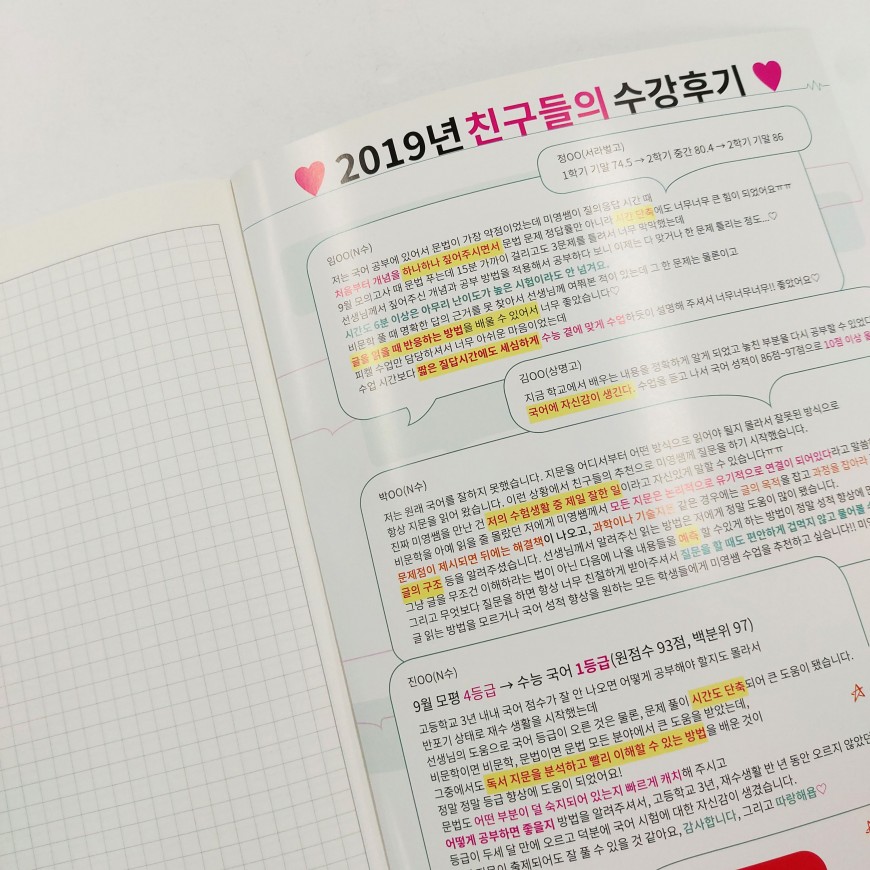 ♥ 2019년 친구들의 수강후기 ♥
정OO(서라벌고)
1학기 기말 74.5 → 2학기 중간 80.4 → 2학기 기말 86
임OO(N수)
저는 국어 공부에 있어서 문법이 가장 약점이었는데 미영쌤이 질의응답 시간 때
처음부터 개념을 하나하나 짚어주시면서 문법 문제 정답률만 아니라 시간 단축에도 너무너무 큰 힘이 되었어요ㅠㅠ
9월 모의고사 때 문법 푸는데 15분 가까이 걸리고도 3문제를 틀려서 너무 막막했는데
선생님께서 짚어주신 개념과 공부 방법을 적용해서 공부하다 보니 이제는 다 맞거나 한 문제 틀리는 정도...♡
시간도 6분 이상은 아무리 난이도가 높은 시험이라도 안 넘겨요.
비문학 풀 때 명확한 답의 근거를 못 찾아서 선생님께 여쭤본 적이 있는데 그 한 문제는 물론이고
글을 읽을 때 반응하는 방법을 배울 수 있어서 너무 좋았습니다♡
피켈 수업만 담당하셔서 너무 아쉬운 마음이었는데
수업 시간보다 짧은 질답시간에도 세심하게 수능 결에 맞게 수업하듯이 설명해 주셔서 너무너무너무!! 좋았어요♡
김OO(상명고)
지금 학교에서 배우는 내용을 정확하게 알게 되었고 놓친 부분을 다시 공부할 수 있었
국어에 자신감이 생긴다. 수업을 듣고 나서 국어 성적이 86점~97점으로 10점 이상
박OO(N수)
저는 원래 국어를 잘하지 못했습니다. 지문을 어디서부터 어떤 방식으로 읽어야 될지 몰라서 잘못된 방식으로
항상 지문을 읽어 왔습니다. 이런 상황에서 친구들의 추천으로 미영쌤께 질문을 하기 시작했습니다.
진짜 미영쌤을 만난 건 저의 수험생활 중 제일 잘한 일이라고 자신있게 말할 수 있습니다ㅠㅠ
비문학을 아예 읽을 줄 몰랐던 저에게 미영쌤께서 모든 지문은 논리적으로 유기적으로 연결이 되어있다라고
문제점이 제시되면 뒤에는 해결책이 나오고, 과학이나 기술지문 같은 경우에는 글의 목적을 잡고 과정을 잡아라
글의 구조 등을 알려주셨습니다. 선생님께서 알려주신 읽는 방법은 저에게 정말 도움이 많이 됐습니다.
그냥 글을 무조건 이해하라는 법이 아닌 다음에 나올 내용들을 예측 할 수있게 하는 방법이 정말 성적 향상에
그리고 무엇보다 질문을 하면 항상 너무 친절하게 받아주셔서 질문을 할 때도 편안하게 겁먹지 않고 물어볼
글 읽는 방법을 모르거나 국어 성적 향상을 원하는 모든 학생들에게 미영쌤 수업을 추천하고 싶습니다!!
진OO(N수)
9월 모평 4등급 → 수능 국어 1등급(원점수 93점, 백분위 97)
고등학교 3년 내내 국어 점수가 잘 안 나오면 어떻게 공부해야 할지도 몰라서
반포기 상태로 재수 생활을 시작했는데
선생님의 도움으로 국어 등급이 오른 것은 물론, 문제 풀이 시간도 단축되어 큰 도움이 됐습니다.
비문학이면 비문학, 문법이면 문법 모든 분야에서 큰 도움을 받았는데,
그중에서도 독서 지문을 분석하고 빨리 이해할 수 있는 방법을 배운 것이
정말 정말 등급 향상에 도움이 되었어요!
문법도 어떤 부분이 덜 숙지되어 있는지 빠르게 캐치해 주시고
어떻게 공부하면 좋을지 방법을 알려주셔서, 고등학교 3년, 재수생활 반 년 동안 오르지 않았던
등급이 두세 달 만에 오르고 덕분에 국어 시험에 대한 자신감이 생겼습니다.
지문이 출제되어도 잘 풀 수 있을 것 같아요, 감사합니다, 그리고 따랑해욤♡